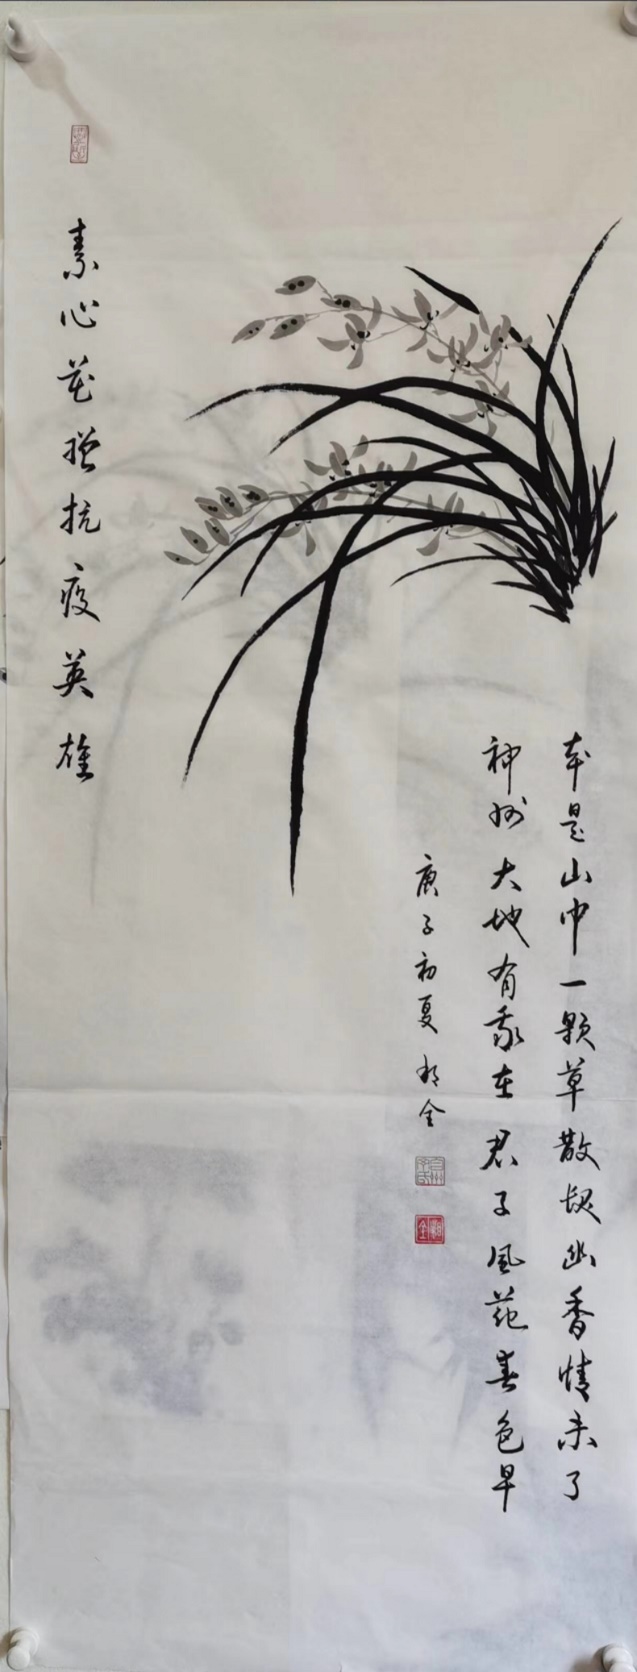 本是山中一颗草散发幽香情未了
神州大地有我在君子风范春色早
庚子初夏
素心花赠抗疫英雄